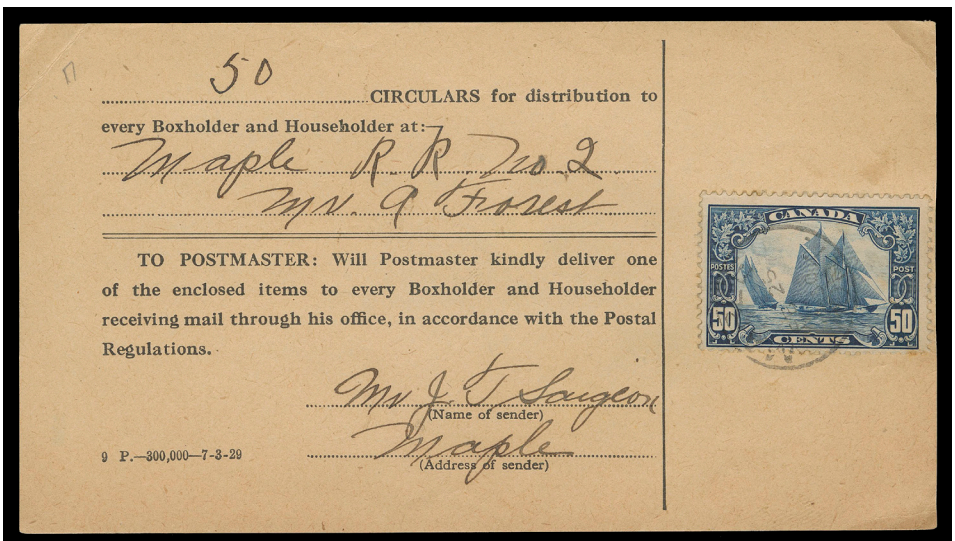 50
CIRCULARS for distribution to
every Boxholder and Householder at:
Maple R. R. No. 2
Mr. A Forest
TO POSTMASTER: Will Postmaster kindly deliver one
of the enclosed items to every Boxholder and Householder
receiving mail through his office, in accordance with the Postal
Regulations.
Mr J. T Saigeon
(Name of sender)
Maple
(Address of sender)
9 P.—300,000—7-3-29
CANADA
POSTES POST
50 50
CENTS